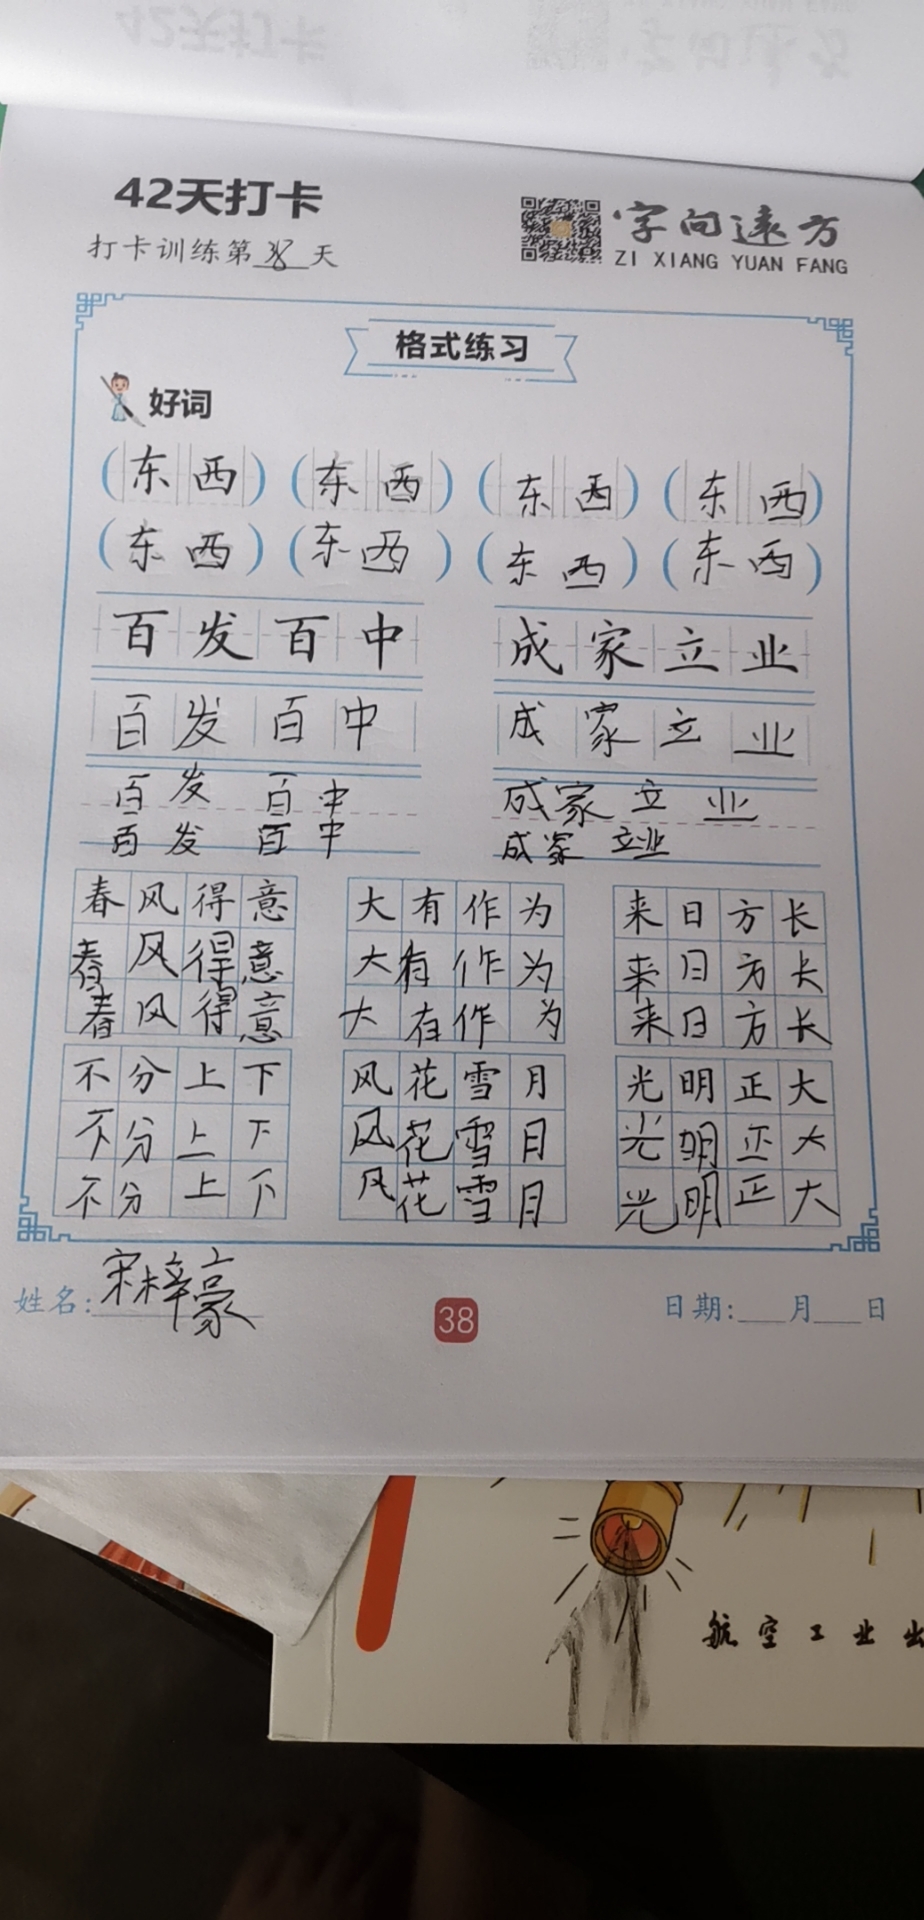 42天打卡
打卡训练第38天
字向远方
ZI XIANG YUAN FANG
格式练习
好词
(东西) (东西) (东西) (东西)
(东西) (东西) (东西) (东西)
百发百中 成家立业
百发百中 成家立业
百发百中 成家立业
百发百中 成家立业
春风得意 大有作为 来日方长
春风得意 大有作为 来日方长
春风得意 大有作为 来日方长
不分上下 风花雪月 光明正大
不分上下 风花雪月 光明正大
不分上下 风花雪月 光明正大
姓名:宋梓豪
38
日期:___月___日
航空工业出